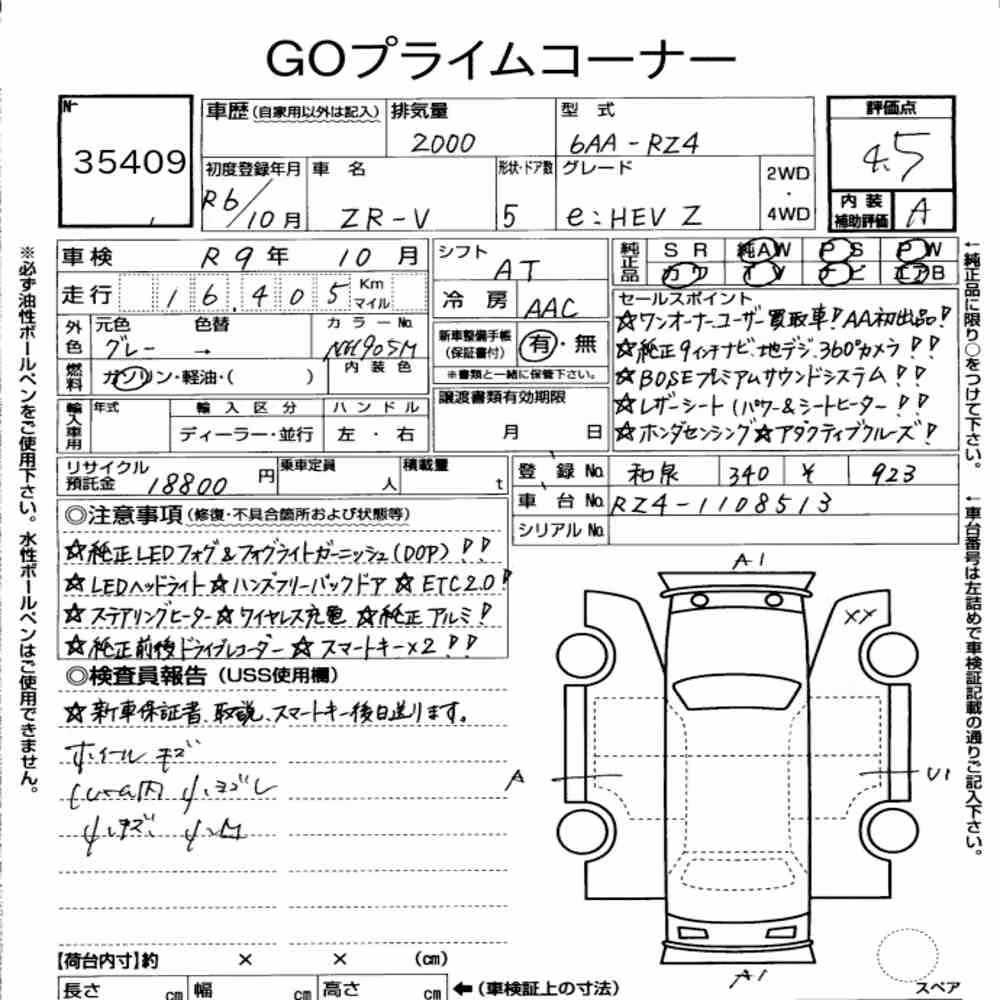 GOプライムコーナー
No.
35409
車歴 (自家用以外は記入)
排気量
2000
型 式
6AA-RZ4
評価点
4.5
初度登録年月
R6/10月
車 名
ZR-V
形状・ドア数
5
グレード
e:HEV Z
2WD
・
4WD
内装
補助評価
A
車検 R9年 10月
走行 16,405 Km
マイル
シフト
AT
冷房
AAC
純正品
SR 純AW PS PW
カワ TV ナビ エアB
外色
元色 色替
グレー →
カラーNo.
NH905M
内装色
燃料
ガソリン・軽油・( )
新車整備手帳
(保証書付)
有・無
※書類と一緒に保管下さい。
セールスポイント
☆ワンオーナーユーザー買取車!AA初出品!
☆純正9インチナビ、地デジ、360°カメラ!!
☆BOSEプレミアムサウンドシステム!!
☆レザーシート(パワー&シートヒーター!!
☆ホンダセンシング☆アダクティブクルーズ!
輸入車用
年式
輸入区分
ディーラー・並行
ハンドル
左・右
譲渡書類有効期限
月 日
リサイクル
預託金
18800円
乗車定員
人
積載量
t
登録No. 和泉 340 ¥ 923
車台No. RZ4-1108513
シリアルNo.
◎注意事項(修復・不具合箇所および状態等)
☆純正LEDフォグ&フォグライトガーニッシュ(DOP)!!
☆LEDヘッドライト☆ハンズフリーバックドア☆ETC2.0!
☆ステアリングヒーター☆ワイヤレス充電☆純正アルミ!
☆純正前後ドライブレコーダー☆スマートキー×2!!
◎検査員報告(USS使用欄)
☆新車保証書、取説、スマートキー後日送ります。
ホイールキズ
内 小ヨゴレ
小キズ 小凹
A1
XX
A
U1
A1
スペア
【荷台内寸】約 × × (cm)
長さ cm 幅 cm 高さ cm ←(車検証上の寸法)
※必ず油性ボールペンをご使用下さい。水性ボールペンはご使用できません。
←純正品に限り○をつけて下さい。
←車台番号は左詰めで車検証記載の通りご記入下さい。